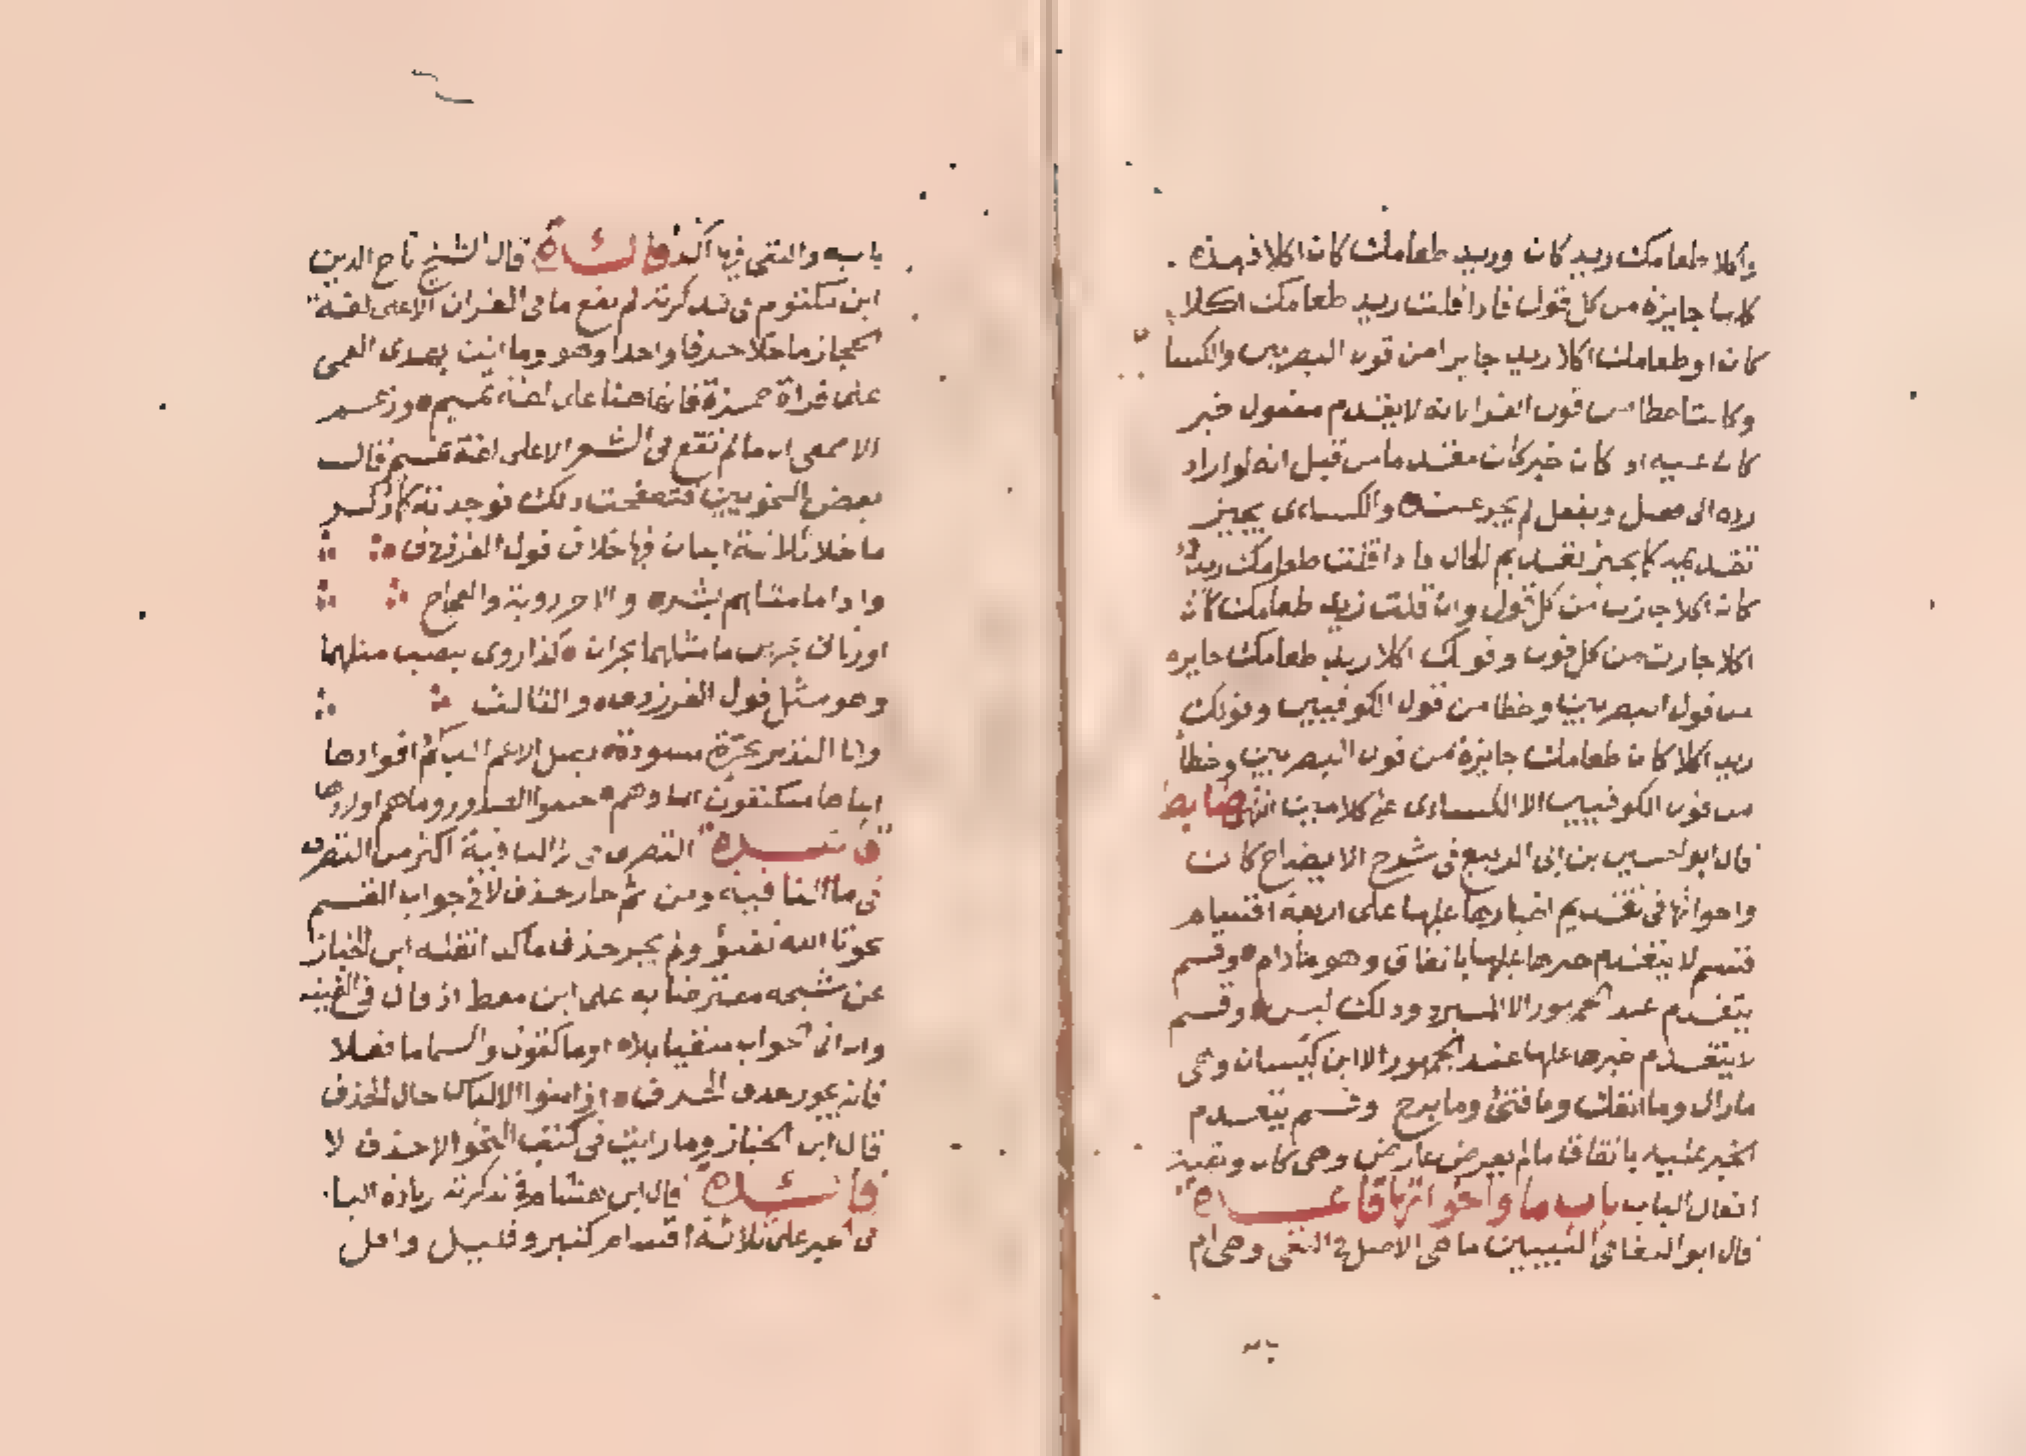 واكلا طعامك زيد كان وزيد طعامك كان اكلا فهذه
كلها جايزة من كل قول فاذا قلت زيد طعامك اكلا
كان او طعامك اكلا زيد جايز من قول البصريين والكسا
وكانتا خطا من قول الفرا لانه لا يتقدم مفعول خبر
كان عليه اذ كان خبر كان مقدما من قبل انه لو اراد
رده الى فعل ويفعل لم يجز عنده والكساءى يجيز
تقديمه كما يجيز تقديم الحال فاذا قلت طعامك زيد
كان اكلا جازت من كل قول وان قلت زيد طعامك كان
اكلا جازت من كل قول وقولك اكلا زيد طعامك جايزه
من قول البصريين وخطا من قول الكوفيين وقولك
زيد اكلا كان طعامك جايزة من قول البصريين وخطأ
من قول الكوفيين الا الكساءى على كلامين انتهى ضابط
قال ابو الحسين بن ابى الربيع فى شرح الايضاح كان
واخواتها فى تقديم اخبارها عليها على اربعة اقسام
قسم لا يتقدم خبرها عليها باتفاق وهو مادام وقسم
يتقدم عند الجمهور الا المبرد وذلك ليس وقسم
لا يتقدم خبرها عليها عند الجمهور الا ابن كيسان وهى
مازال وما انفك وما فتئ وما برح وقسم يتقدم
الخبر عليه باتفاق ما لم يعرض عارض وهى كان وبقية
افعال الباب باب ما واخواتها قاعدة
قال ابو البقا فى التبيين ما هى الاصل فى النفى وهى ام
بابه والنفى فيها اكد فائدة قال الشيخ تاج الدين
ابن مكتوم فى تذكرته لم يقع ما فى القران الا على لغة
الحجاز ما خلا حرفا واحدا وهو وما انت بهدى العمى
على قراة حمزة فانها هنا على لغة تميم وزعم
الاصمعى ان ما لم تقع فى الشعر الا على لغة تميم قال
بعض النحويين فتصفحت ذلك فوجدته كما ذكر
ما خلا ثلاثة ابيات فيها خلاف قول الفرزدق
واذ ما مثلهم بشر والاخر رؤبة والعجاج
اوزنان خربين ما مثلهما بجران كذا روى بنصب مثلهما
وهو مثل قول الفرزدق والثالث
وانا النذير بحرة مسودة يصل الاعم اليكم اقوادها
ابناها متكنفون اباهم حنقوا الصدور وما هم اولادها
فائدة التصرف فى لا النافية اكثر من التصرف
فى ما النافية ومن ثم جاز حذف لا فى جواب القسم
نحو تالله تفتؤ ولم يجز حذف ما كذا نقله ابن الخباز
عن شيخه معترضا به على ابن معط اذ قال فى الفيته
وان اتى الجواب منفيا بلا او ما كقولى والسما ما فعلا
فانه يجوز حذف الحرف اذ امنوا الالباس حال الحذف
قال ابن الخباز وما رايت فى كتب النحو الا حذف لا
فائدة قال ابن هشام فى تذكرته زيادة البا
فى الخبر على ثلاثة اقسام كثير وقليل واقل